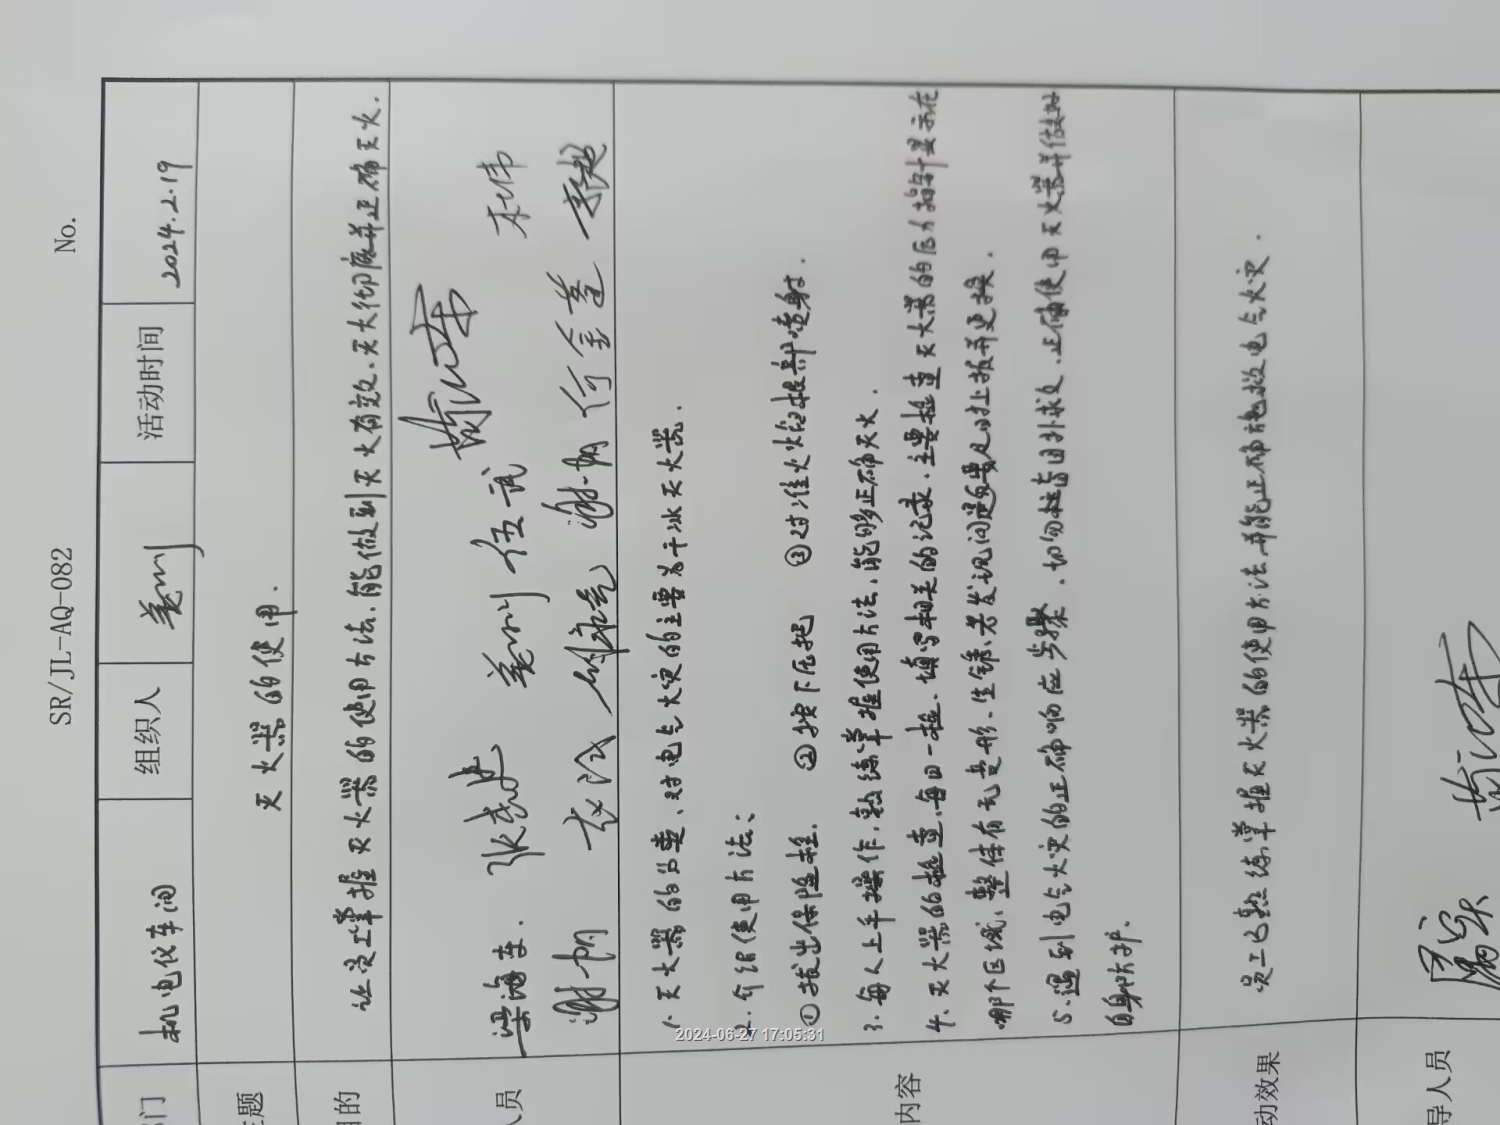 SR/JL-AQ-082 No.
部门 机电仪车间 组织人 姜川 活动时间 2024.2.19
主题 灭火器的使用.
目的 让员工掌握灭火器的使用方法,能做到灭火有效、灭火彻底并正确灭火.
人员 梁海车. 姜川 伍武 杜伟
谢帅 谢帅 李超
1. 灭火器的分类、对电气火灾的主要为干冰灭火器.
2. 介绍使用方法:
①拔出保险栓. ②按下压把 ③对准火焰根部喷射.
3. 每人上手操作,熟练掌握使用方法,能够正确灭火.
内容
4. 灭火器的检查,每日一检、填写相关的记录、主要检查灭火器的压力指针显示在
哪个区域、整体有无变形、生锈、若发现问题要及时上报并更换.
5、遇到电气火灾的正确响应步骤、切勿盲目扑救、正确使用灭火器并做好
自身防护.
动效果 员工已熟练掌握灭火器的使用方法,并能正确施救电气火灾.
导人员
2024-06-27 17:05:31